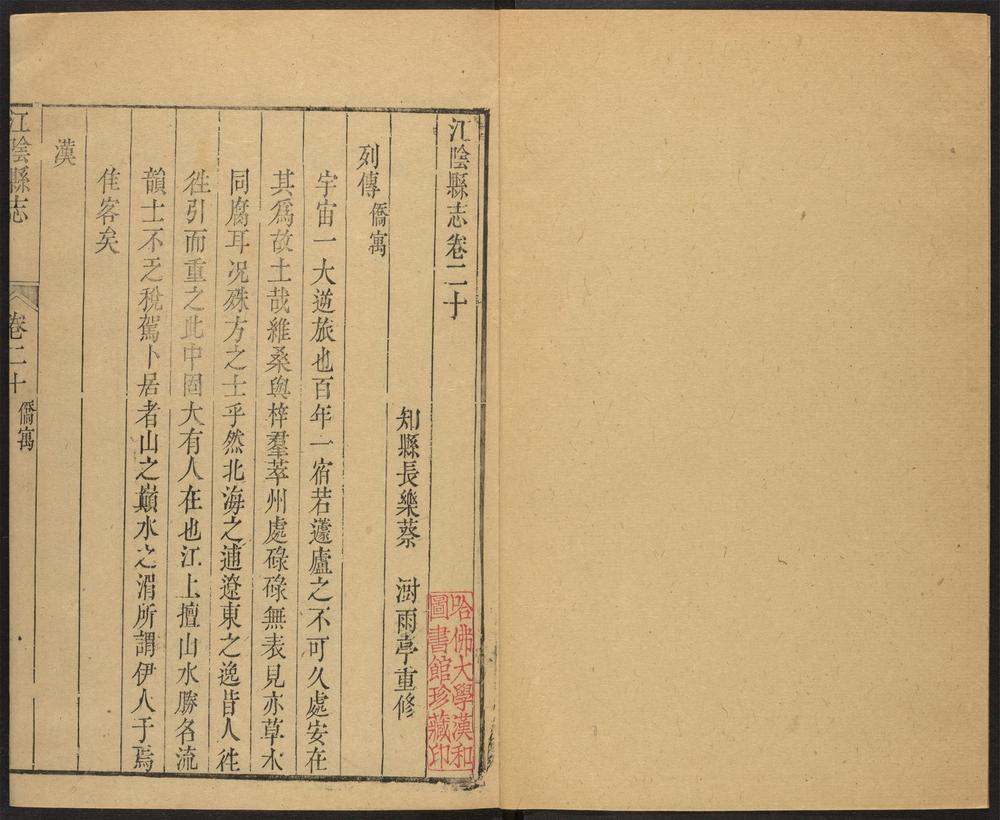 江陰縣志卷二十
知縣長樂蔡　澍雨亭重修
列傳僑寓
宇宙一大逆旅也百年一宿若蘧廬之不可久處安在
其爲故土哉維桑與梓羣萃州處碌碌無表見亦草木
同腐耳况殊方之士乎然北海之逋遼東之逸皆人徃
徃引而重之此中固大有人在也江上擅山水勝名流
韻士不乏稅駕卜居者山之巔水之湄所謂伊人于焉
隹客矣
漢
江陰縣志
卷二十
僑寓
哈佛大學漢和
圖書館珍藏印